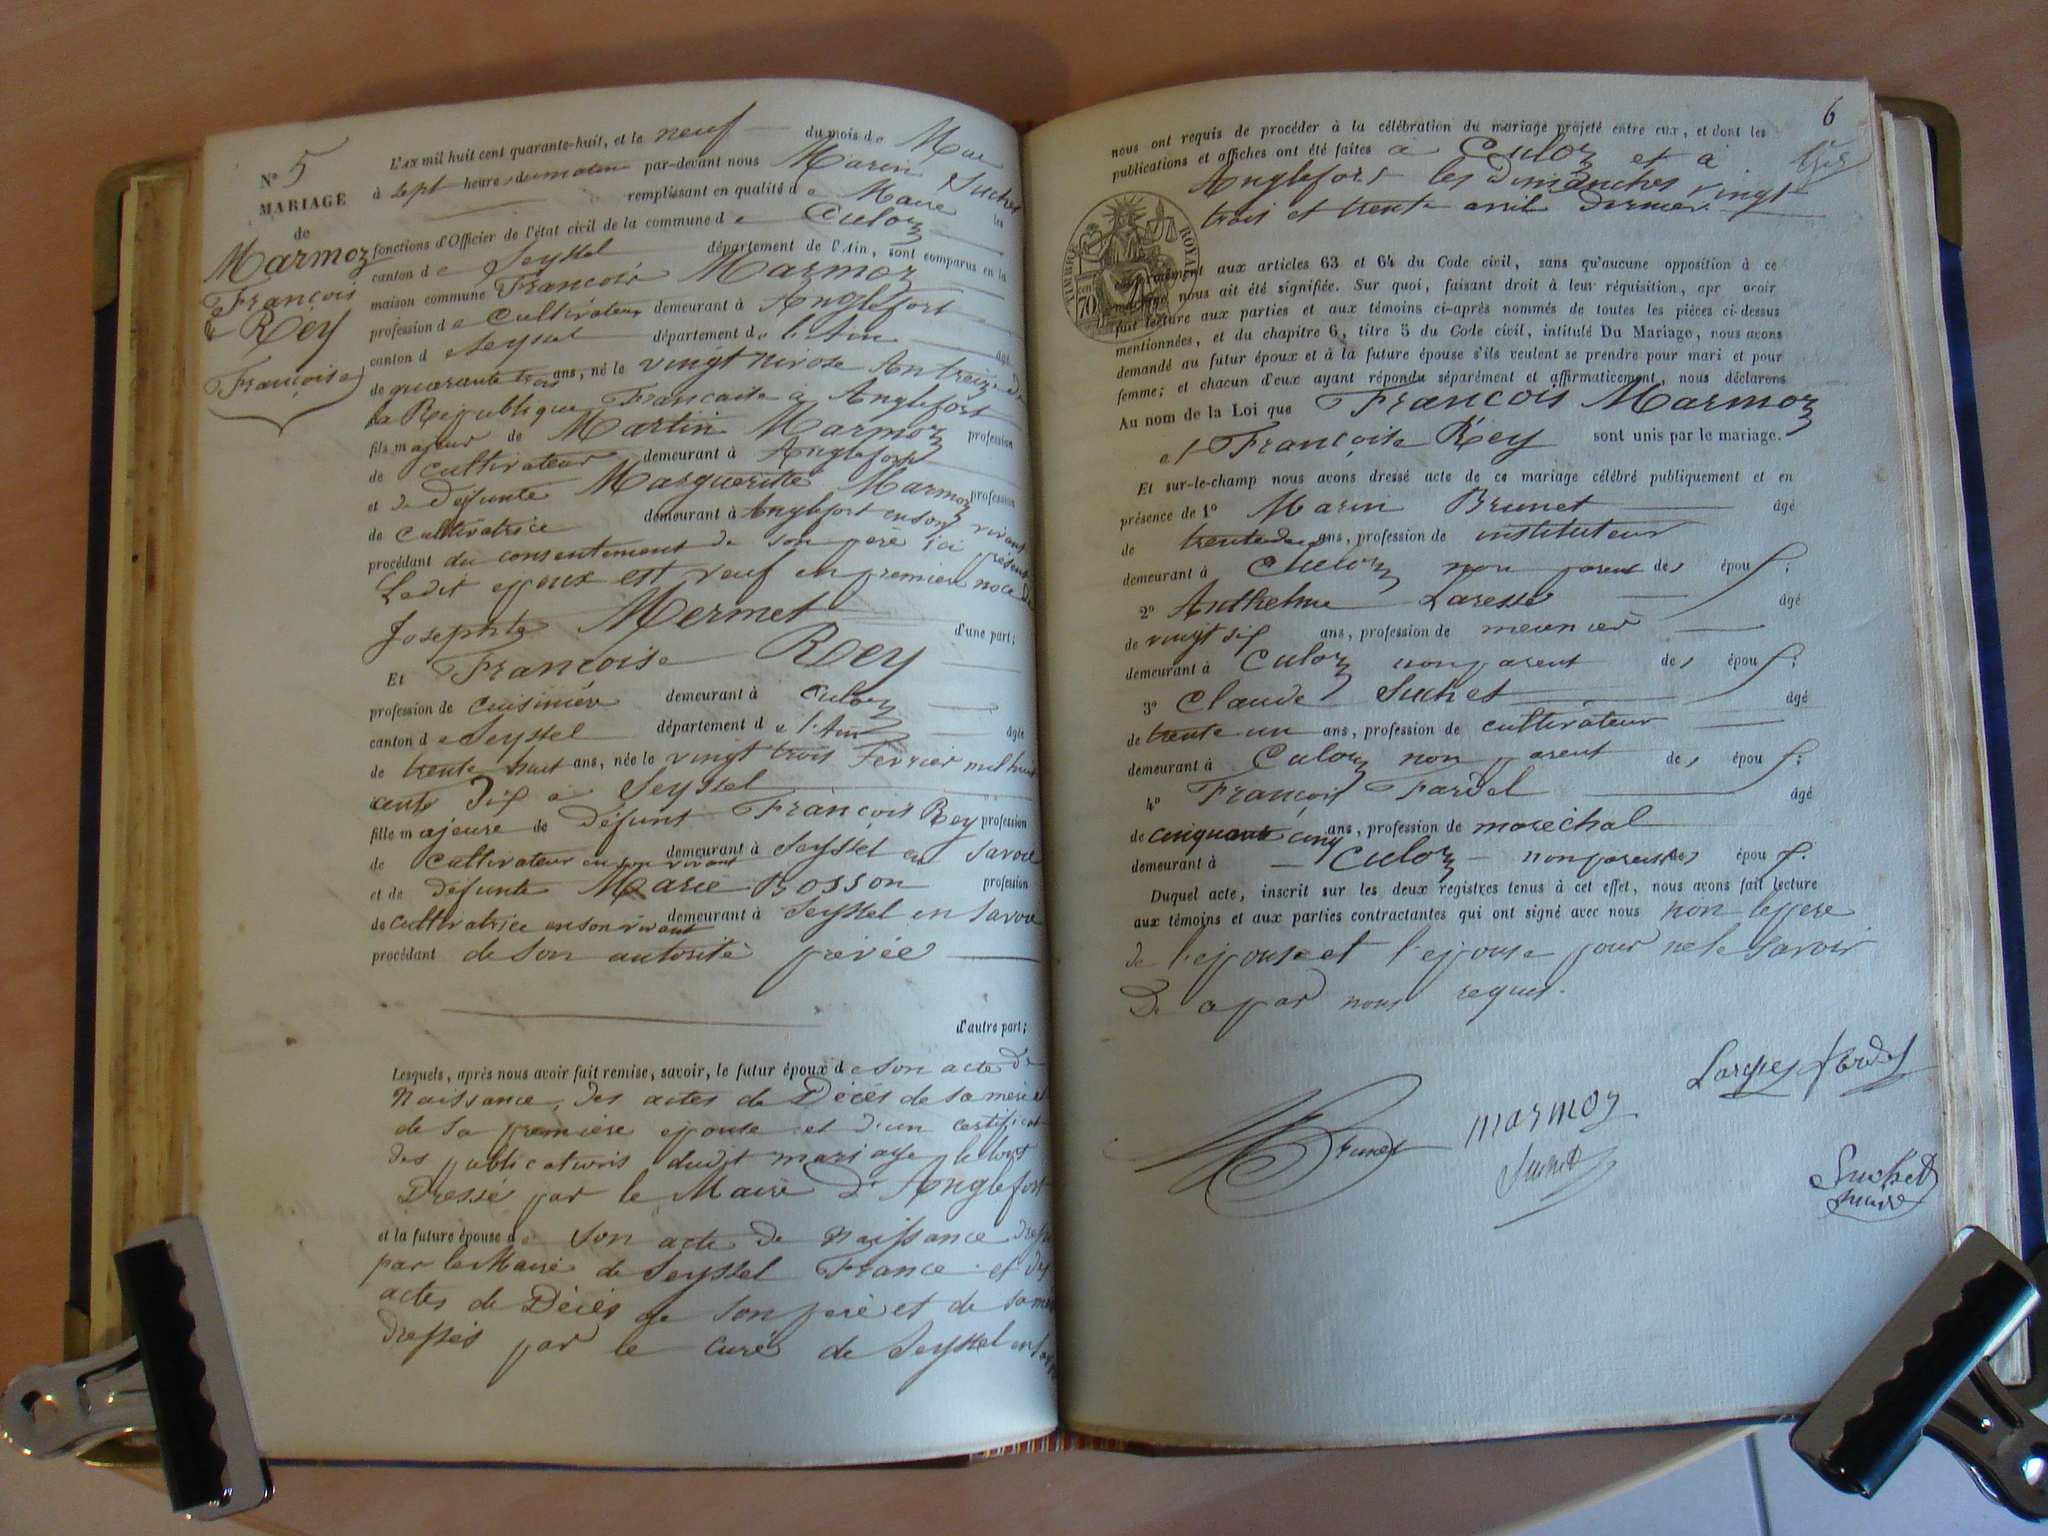 N° 5
MARIAGE
de
Marmoz
François
& Rey
Françoise
L'AN mil huit cent quarante-huit, et le neuf du mois de Mai
à sept heures du matin par-devant nous Marin Suchet
remplissant en qualité de Maire les
fonctions d'Officier de l'état civil de la commune de Culoz
canton de Seyssel département de l'Ain, sont comparus en la
maison commune François Marmoz
profession de Cultivateur demeurant à Anglefort
canton d Seyssel département de l'Ain âgé
de quarante trois ans, né le vingt nivose An treize de
la République Française à Anglefort
fils majeur de Martin Marmoz profession
de cultivateur demeurant à Anglefort
et de Défunte Marguerite Marmoz profession
de cultivatrice demeurant à Anglefort en son vivant
procédant du consentement de son pere ici présent
Ledit epoux est veuf en premiere noce de
Josephte Mermet d'une part;
Et Françoise Rey
profession de cuisinière demeurant à Culoz
canton de Seyssel département de l'Ain âgée
de trente huit ans, née le vingt trois Fevrier mil huit
cents dix à Seyssel
fille majeure de Défunt François Rey profession
de cultivateur en son vivant demeurant à Seyssel en Savoie
et de défunte Marie Bosson profession
de cultivatrice en son vivant demeurant à Seyssel en Savoie
procédant de son autorité privée
d'autre part;
Lesquels, après nous avoir fait remise, savoir, le futur époux de son acte de
Naissance, des actes de Décés de sa mere et
de sa premiere epouse et d'un certificat
des publications dudit mariage le tout
Dressé par le Maire d'Anglefort
et la future épouse de son acte de Naissance dressé
par le Maire de Seyssel France et des
actes de Décés de son pere et de sa mere
dressés par le curé de Seyssel en Savoie
6
nous ont requis de procéder à la célébration du mariage projeté entre eux, et dont les
publications et affiches ont été faites à Culoz et à
Anglefort les dimanches vingt
trois et trente avril dernier
TIMBRE ROYAL
70
conformément aux articles 63 et 64 du Code civil, sans qu'aucune opposition à ce
mariage nous ait été signifiée. Sur quoi, faisant droit à leur réquisition, apr avoir
fait lecture aux parties et aux témoins ci-après nommés de toutes les pièces ci-dessus
mentionnées, et du chapitre 6, titre 5 du Code civil, intitulé Du Mariage, nous avons
demandé au futur époux et à la future épouse s'ils veulent se prendre pour mari et pour
femme; et chacun d'eux ayant répondu séparément et affirmativement, nous déclarons
Au nom de la Loi que François Marmoz
et Françoise Rey sont unis par le mariage.
Et sur-le-champ nous avons dressé acte de ce mariage célébré publiquement et en
présence de 1° Marin Brunet âgé
de trente deux ans, profession de instituteur
demeurant à Culoz non parent des épou x;
2° Anthelme âgé
de vingt six ans, profession de meunier
demeurant à Culoz non parent des épou x;
3° Claude Suchet âgé
de trente un ans, profession de cultivateur
demeurant à Culoz non parent des épou x;
4° François Fardel âgé
de cinquante cinq ans, profession de marechal
demeurant à Culoz non parent des épou x.
Duquel acte, inscrit sur les deux registres tenus à cet effet, nous avons fait lecture
aux témoins et aux parties contractantes qui ont signé avec nous non le pere
de l'epouse et l'epouse pour ne le savoir
De a par nous requis.
Fardel
Brunet marmoz
Suchet
Suchet
maire